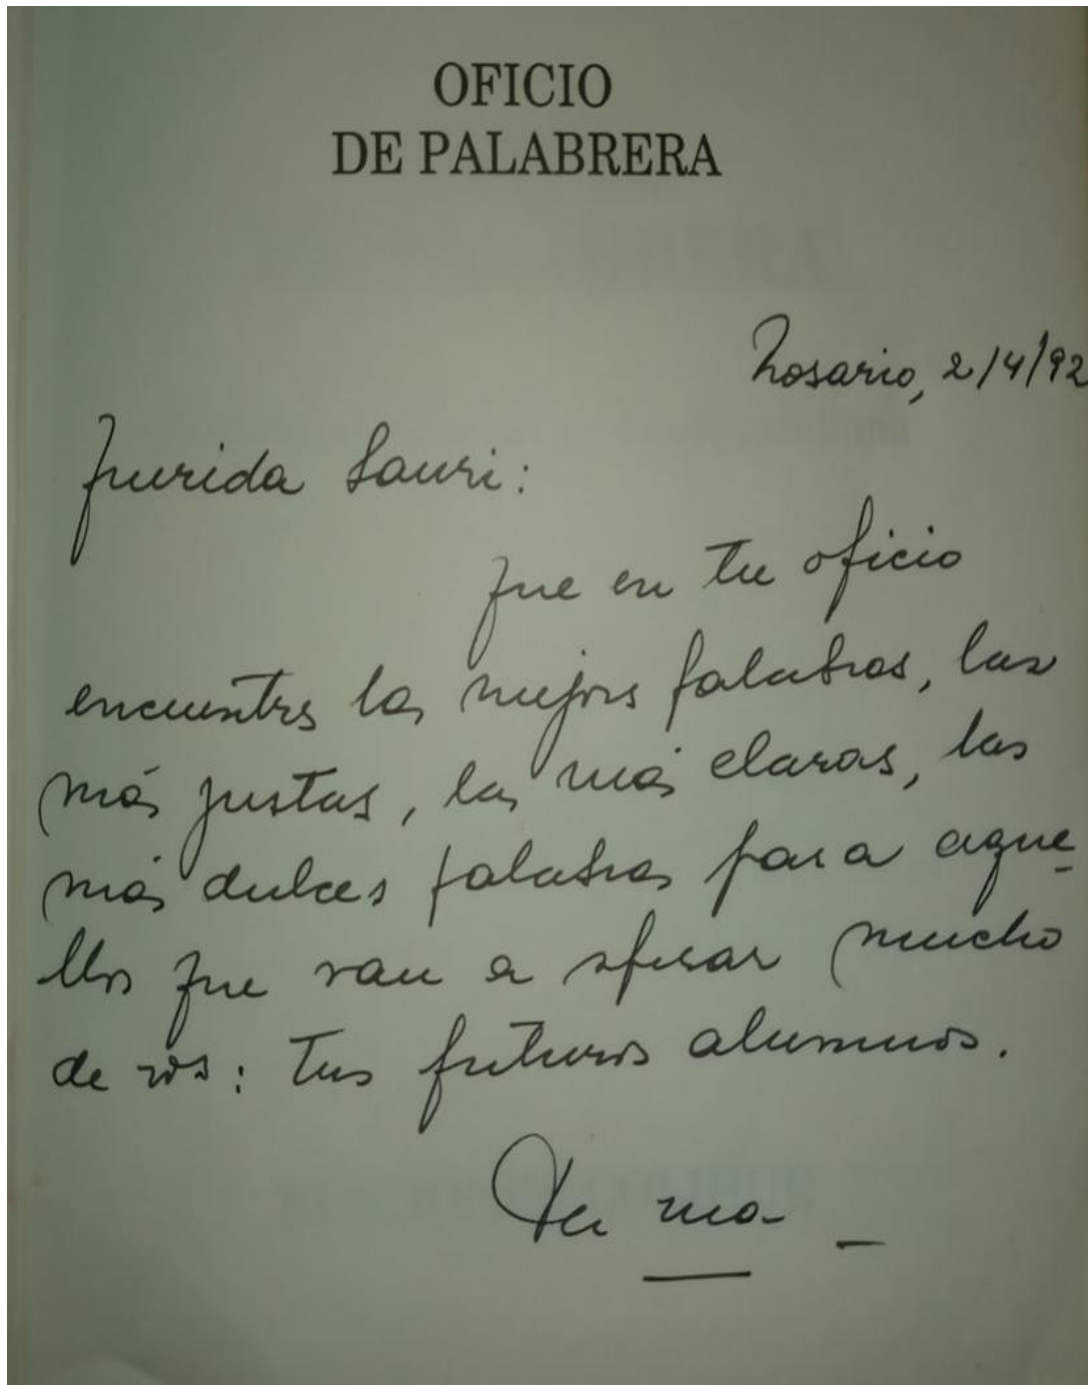 OFICIO
DE PALABRERA
Rosario, 2/4/92
Querida Lauri:
Que en tu oficio
encuentres las mejores palabras, las
más justas, las más claras, las
más dulces palabras para aque_
llos que van a esperar mucho
de vos: tus futuros alumnos.
Tu ma-